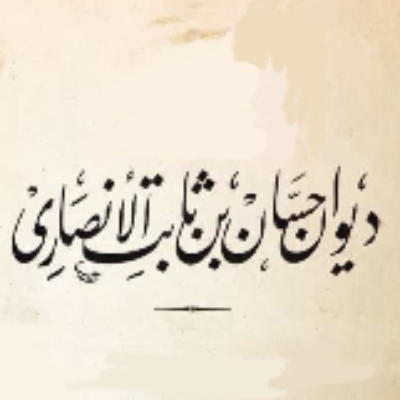 ديوان حسَّان بن ثابت الأنصاري